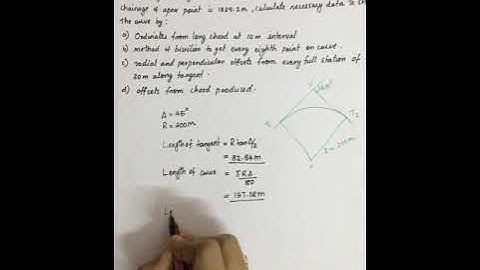 chainage of apex point is 1829.2m, calculate necessary data to
the curve by:
a) Ordinates from long chord at 10m interval
b) method of bisection to get every eighth point on curve.
c) radial and perpendicular offsets from every full station of
20m along tangent.
d) offsets from chord produced.
Δ = 45°
R = 200m
Length of tangent = R tan Δ/2
= 82.84m
Length of curve = πRΔ
180
= 157.08m
L
V
45°
T1
T2
R = 200m